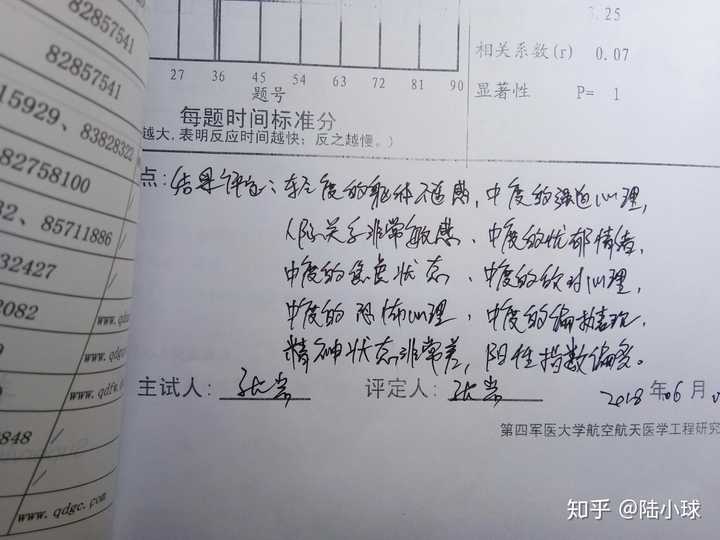 82857541
82857541
15929、83828322
82758100
32、85711886
32427
2082
www.qdgc
www.qdfw.
848
www.qdgc.com
3.25
相关系数(r) 0.07
显著性 P= 1
27 36 45 54 63 72 81 90
题号
每题时间标准分
越大,表明反应时间越快;反之越慢。)
点:结果评定:轻度的躯体不适感,中度的强迫心理,
人际关系非常敏感、中度的忧郁情绪,
中度的焦虑状态、中度的敌对心理,
中度的恐怖心理,中度的偏执表现,
精神状态非常差,阳性指数偏多。
主试人: 评定人: 2018年06月
第四军医大学航空航天医学工程研究
知乎 @陆小球